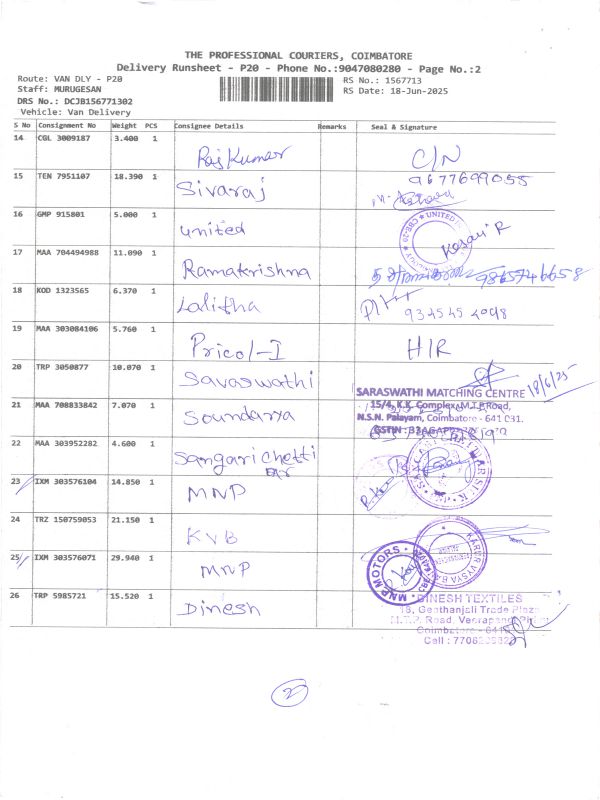 THE PROFESSIONAL COURIERS, COIMBATORE
Delivery Runsheet - P20 - Phone No.:9047080280 - Page No.:2
Route: VAN DLY - P20
Staff: MURUGESAN
DRS No.: DCJB156771302
Vehicle: Van Delivery
RS No.: 1567713
RS Date: 18-Jun-2025
S No Consignment No Weight PCS Consignee Details Remarks Seal & Signature
14 CGL 3009187 3.400 1 Rajkumar C/N
15 TEN 7951107 18.390 1 Sivaraj 9677699055
16 GMP 915801 5.000 1 United UNITED Kesav R
17 MAA 704494988 11.090 1 Ramakrishna 9865746658
18 KOD 1323565 6.370 1 Lalitha 934545 4098
19 MAA 303084106 5.760 1 Pricol-I H/R
20 TRP 3050877 10.070 1 Savaswathi 18/6/25
SARASWATHI MATCHING CENTRE
15/4, K.K. Complex, M.T.P. Road,
N.S.N. Palayam, Coimbatore - 641 031.
21 MAA 708833842 7.070 1 Soundarya
22 MAA 303952282 4.600 1 Sangari chetti
23 IXM 303576104 14.850 1 MNP
24 TRZ 150759053 21.150 1 KVB
25 IXM 303576071 29.940 1 MNP MNP MOTORS
26 TRP 5985721 15.520 1 Dinesh
DINESH TEXTILES
18, Geethanjali Trade Plaza
M.T.P. Road, Veerapandi
Coimbatore - 641
Cell : 7708
2